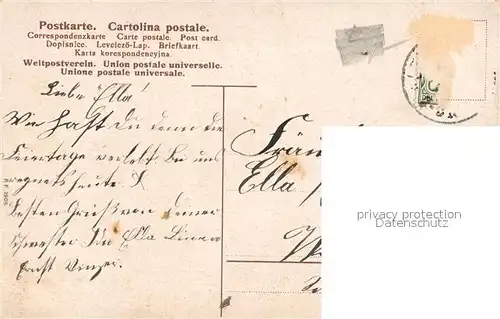 Postkarte. Cartolina postale.
Correspondenzkarte Carte postale. Post card.
Dopisnice. Levelező-Lap. Briefkaart.
Karta korespondencyjna.
Weltpostverein. Union postale universelle.
Unione postale universale.
Liebe Ella!
Wie hast du denn die
Feiertage verlebt. Bei uns
regnets heute.
Besten Gruß von deiner
Schwester
Ella
Ernst
Fräu
Ella
privacy protection
Datenschutz